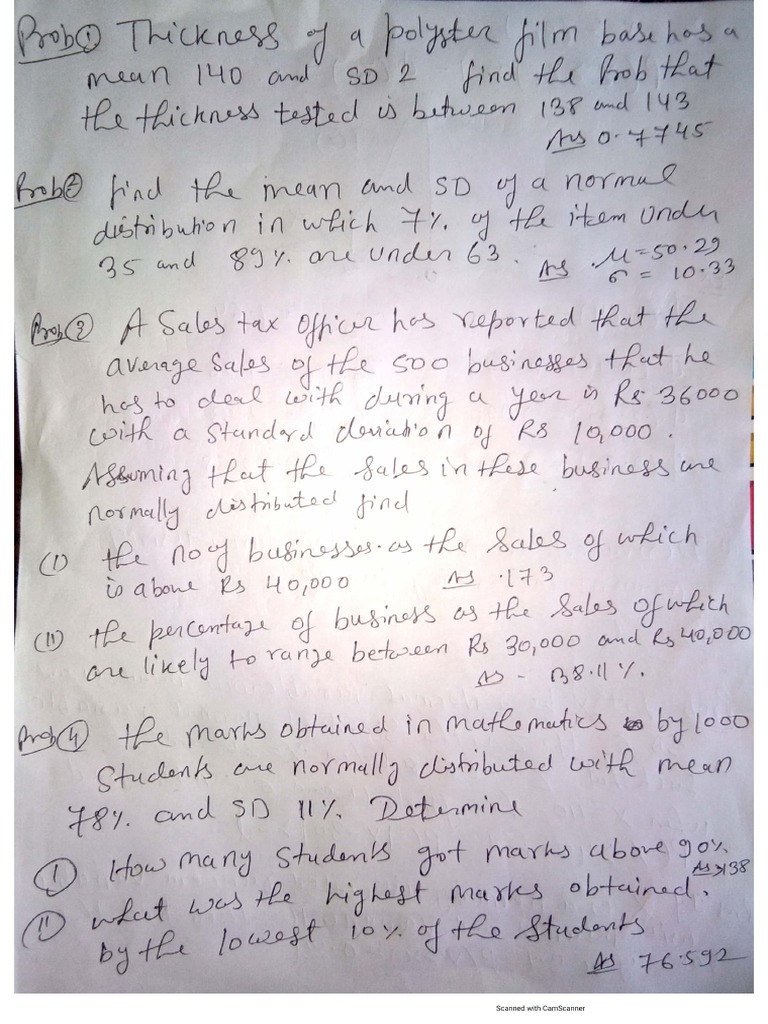 Prob① Thickness of a polyster film base has a
mean 140 and SD 2 find the Prob that
the thickness tested is between 138 and 143
As 0.7745
Prob② find the mean and SD of a normal
distribution in which 7% of the item under
35 and 89% are under 63.
As μ = 50.29
σ = 10.33
Prob③ A Sales tax officer has reported that the
average sales of the 500 businesses that he
has to deal with during a year is Rs 36000
with a standard deviation of Rs 10,000.
Assuming that the sales in these business are
normally distributed find
(I) the no of businesses as the sales of which
is above Rs 40,000 As .173
(II) the percentage of business as the sales of which
are likely to range between Rs 30,000 and Rs 40,000
As - 38.11%.
Prob④ the marks obtained in mathematics by 1000
students are normally distributed with mean
78% and SD 11%. Determine
Ⓘ How many students got marks above 90%.
As 138
Ⓘⓘ what was the highest marks obtained.
by the lowest 10% of the students
As 76.592
Scanned with CamScanner